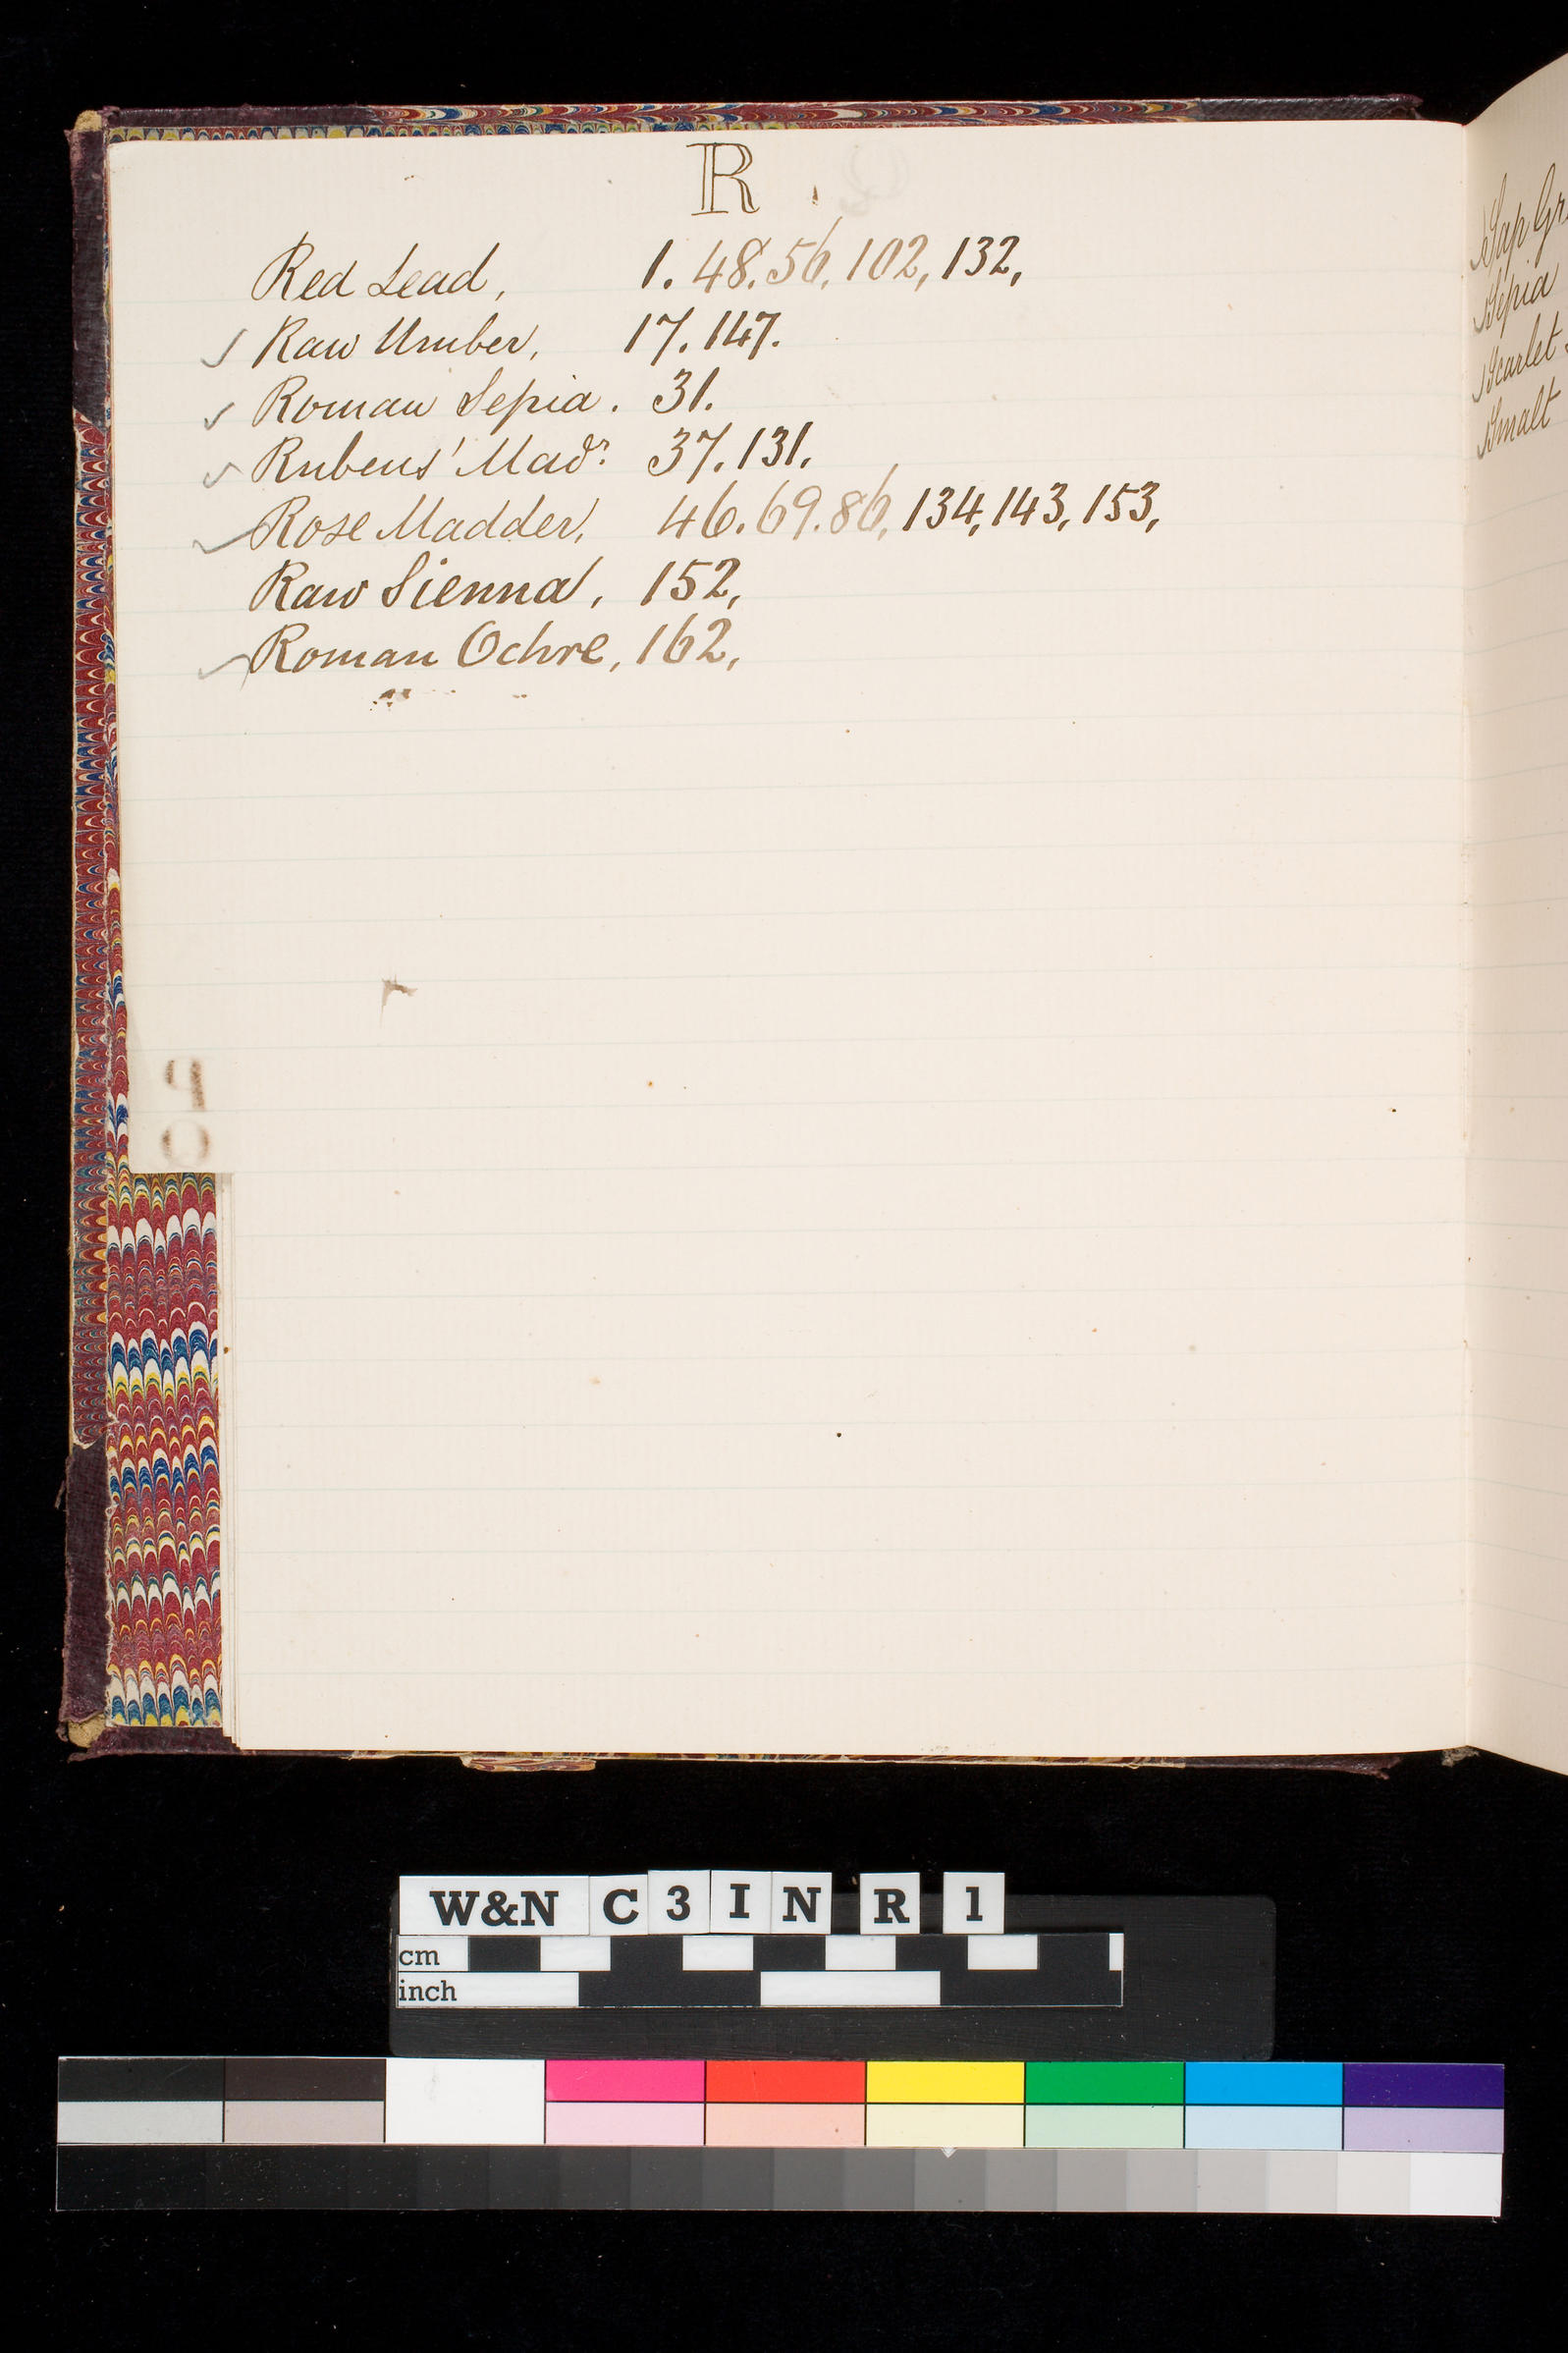 R
Red Lead, 1. 48. 56, 102, 132,
✓ Raw Umber, 17. 147.
✓ Roman Sepia. 31.
✓ Rubens' Madr. 37. 131.
✓ Rose Madder, 46. 69. 86, 134, 143, 153,
Raw Sienna, 152,
✓ Roman Ochre, 162,
✓ Sap Gr
✓ Sepia
✓ Scarlet
✓ Smalt
W&N C3IN R 1
cm
inch